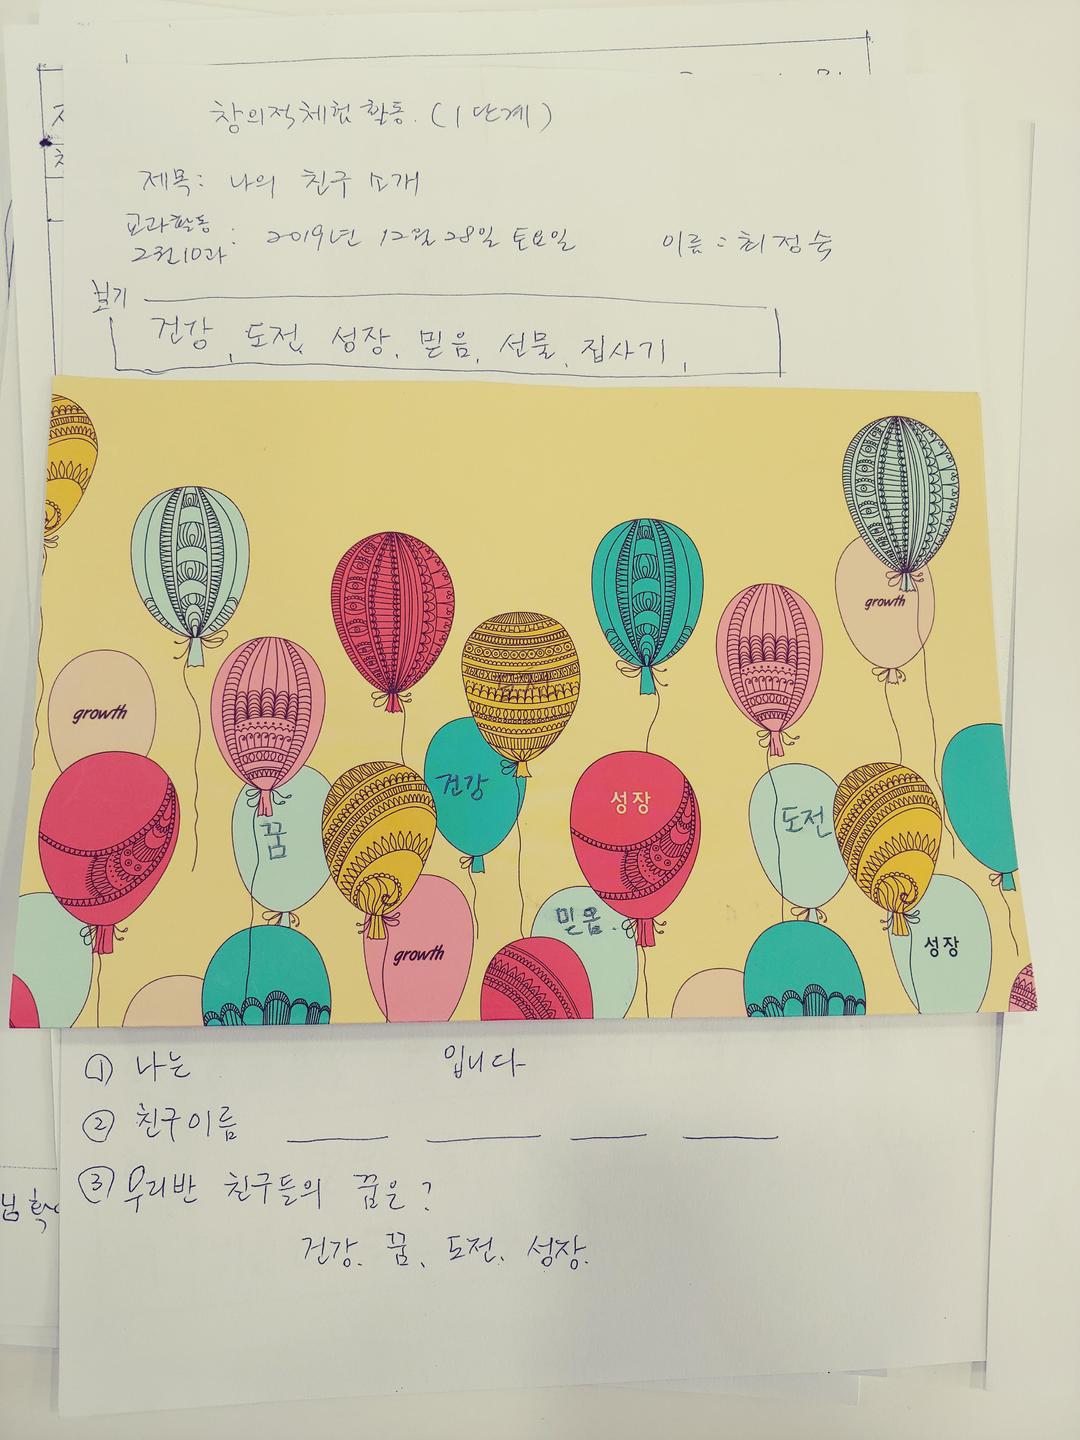 창의적체험 활동. (1단계)
제목: 나의 친구 소개
교과활동
2권10과 : 2019년 12월 28일 토요일 이름: 최정숙
보기
건강, 도전, 성장, 믿음, 선물, 집사기,
growth
growth
건강
성장
도전
꿈
믿음.
growth
성장
① 나는 입니다
② 친구이름
③ 우리반 친구들의 꿈은?
건강. 꿈. 도전. 성장.